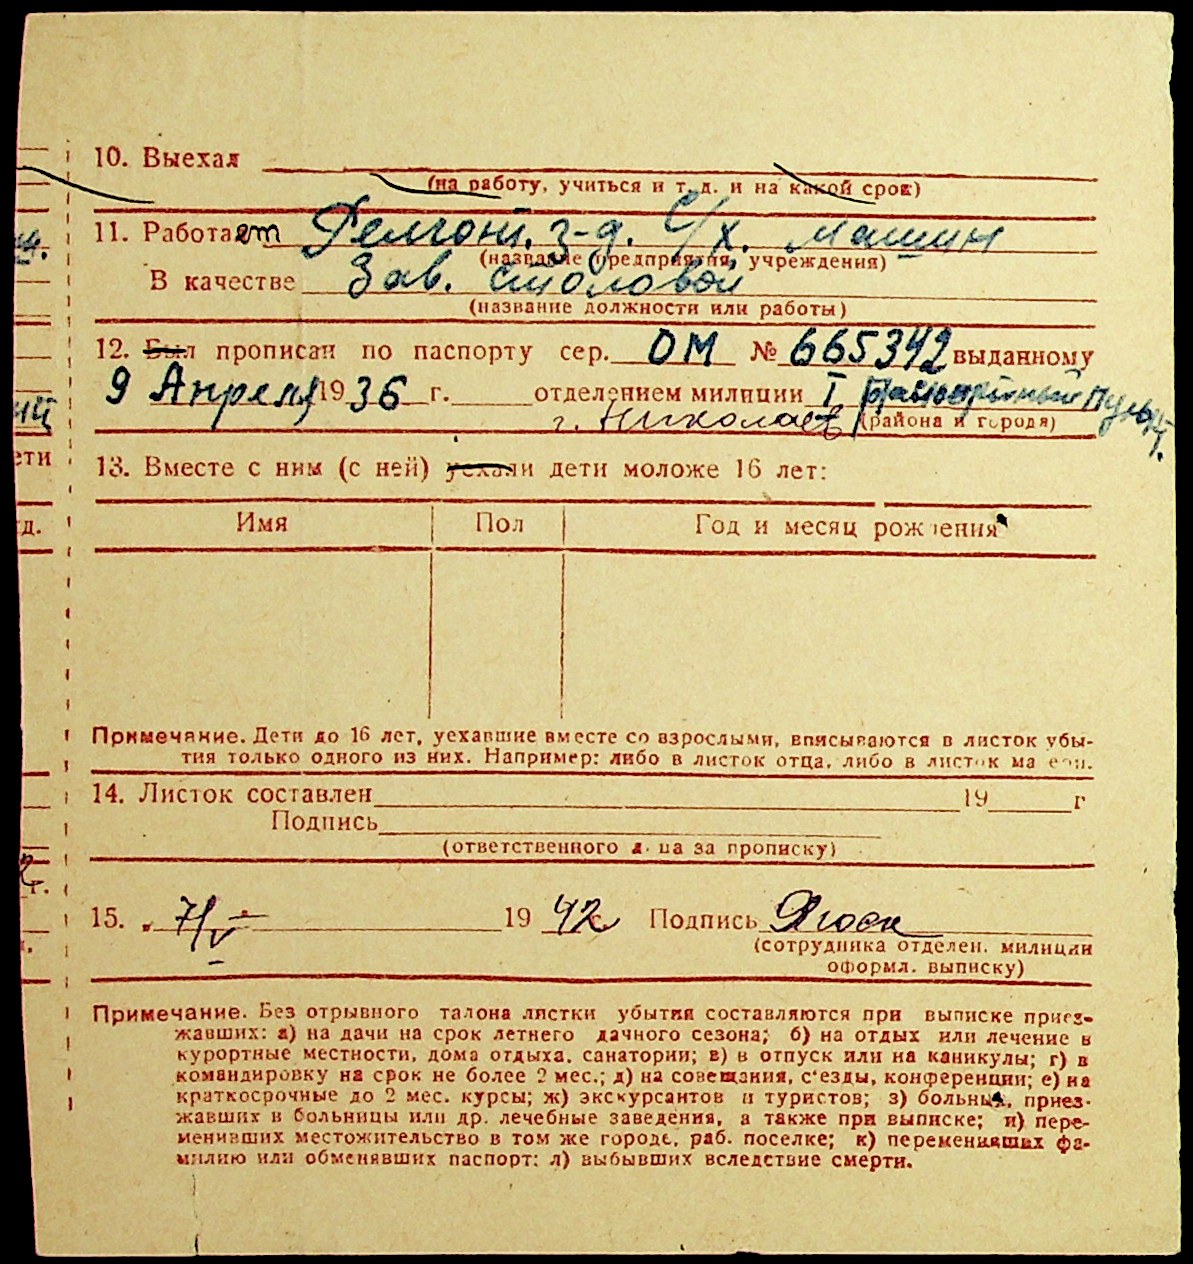 10. Выехал
(на работу, учиться и т. д. и на какой срок)
11. Работает Ремонт. з-д. с/х. машин
(название предприятия, учреждения)
В качестве Зав. столовой
(название должности или работы)
12. Был прописан по паспорту сер. ОМ № 665342 выданному
9 Апреля 1936 г. отделением милиции I Паспортный Пункт.
г. Николаев (района и города)
13. Вместе с ним (с ней) уехали дети моложе 16 лет:
Имя Пол Год и месяц рождения
Примечание. Дети до 16 лет, уехавшие вместе со взрослыми, вписываются в листок убы-
тия только одного из них. Например: либо в листок отца, либо в листок матери.
14. Листок составлен 19 г
Подпись
(ответственного лица за прописку)
15. „ 7/V 19 42 г. Подпись
(сотрудника отделен. милиции
оформл. выписку)
Примечание. Без отрывного талона листки убытия составляются при выписке приез-
жавших: а) на дачи на срок летнего дачного сезона; б) на отдых или лечение в
курортные местности, дома отдыха, санатории; в) в отпуск или на каникулы; г) в
командировку на срок не более 2 мес.; д) на совещания, с'езды, конференции; е) на
краткосрочные до 2 мес. курсы; ж) экскурсантов и туристов; з) больных, приез-
жавших в больницы или др. лечебные заведения, а также при выписке; и) пере-
менивших местожительство в том же городе, раб. поселке; к) переменивших фа-
милию или обменявших паспорт; л) выбывших вследствие смерти.